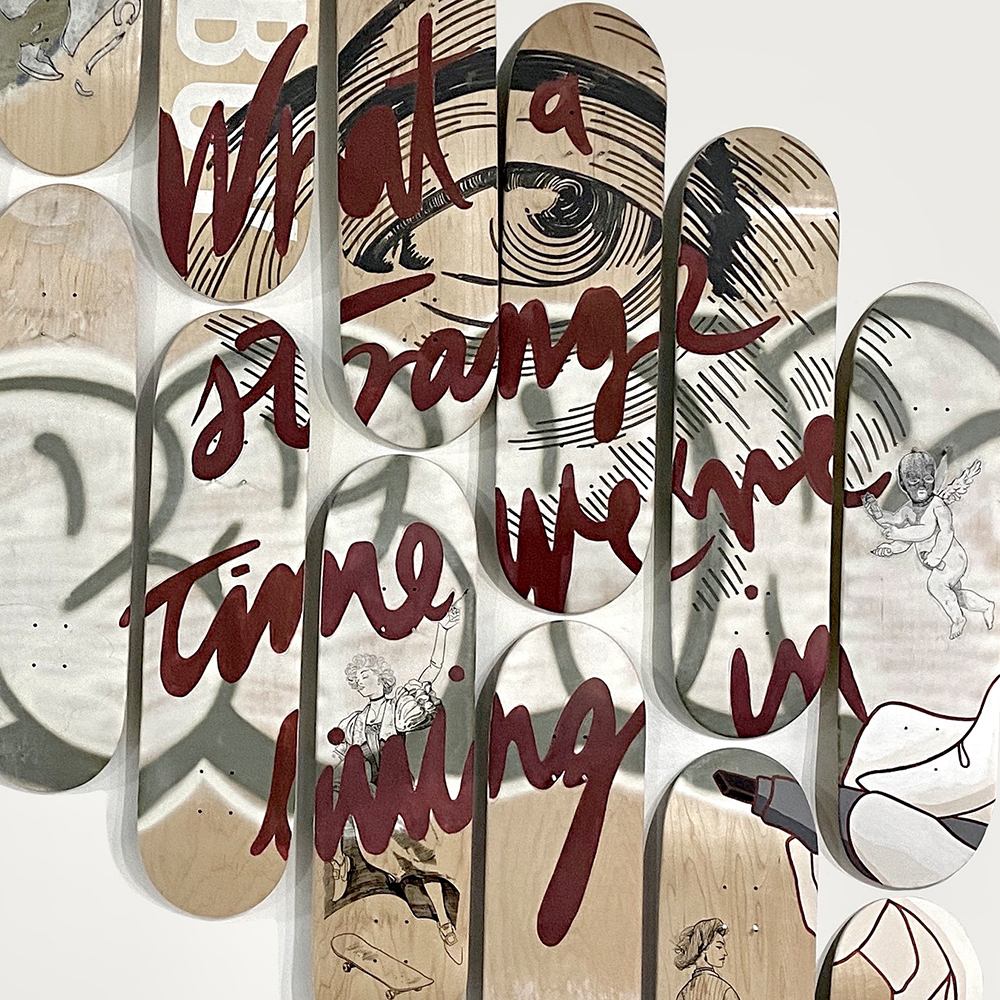 What a
strange
time we're
living in